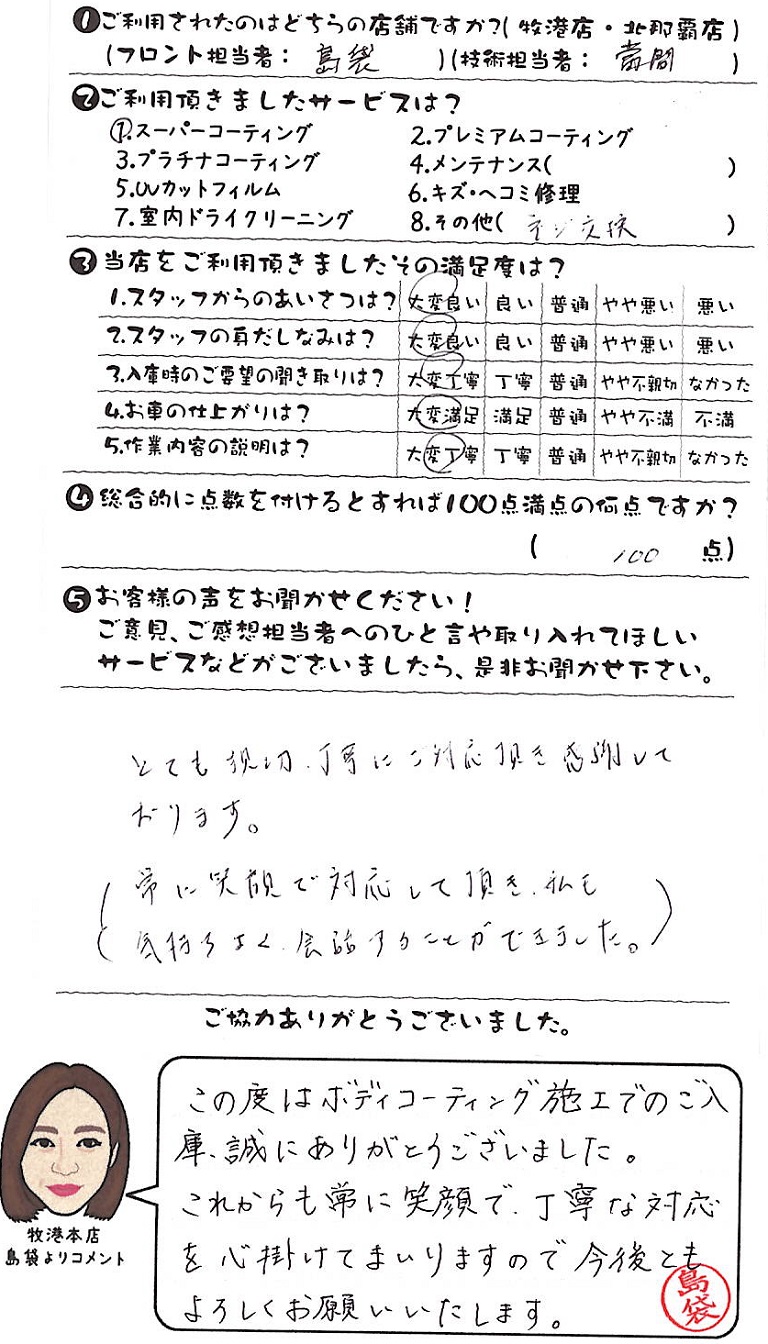 ❶ご利用されたのはどちらの店舗ですか?(牧港店・北那覇店)
(フロント担当者: 島袋 )(技術担当者: 當間 )
❷ご利用頂きましたサービスは?
①.スーパーコーティング 2.プレミアムコーティング
3.プラチナコーティング 4.メンテナンス( )
5.UVカットフィルム 6.キズ・ヘコミ修理
7.室内ドライクリーニング 8.その他( ネジ交換 )
❸当店をご利用頂きましたその満足度は?
1.スタッフからのあいさつは? 大変良い 良い 普通 やや悪い 悪い
2.スタッフの身だしなみは? 大変良い 良い 普通 やや悪い 悪い
3.入庫時のご要望の聞き取りは? 大変丁寧 丁寧 普通 やや不親切 なかった
4.お車の仕上がりは? 大変満足 満足 普通 やや不満 不満
5.作業内容の説明は? 大変丁寧 丁寧 普通 やや不親切 なかった
❹総合的に点数を付けるとすれば100点満点の何点ですか?
( 100 点)
❺お客様の声をお聞かせください!
ご意見、ご感想担当者へのひと言や取り入れてほしい
サービスなどがございましたら、是非お聞かせ下さい。
とても親切、丁寧にご対応頂き感謝して
おります。
(常に笑顔で対応して頂き、私も
気持ちよく、会話することができました。)
ご協力ありがとうございました。
この度はボディコーティング施工でのご入
庫、誠にありがとうございました。
これからも常に笑顔で、丁寧な対応
を心掛けてまいりますので今後とも
よろしくお願いいたします。
島袋
牧港本店
島袋よりコメント